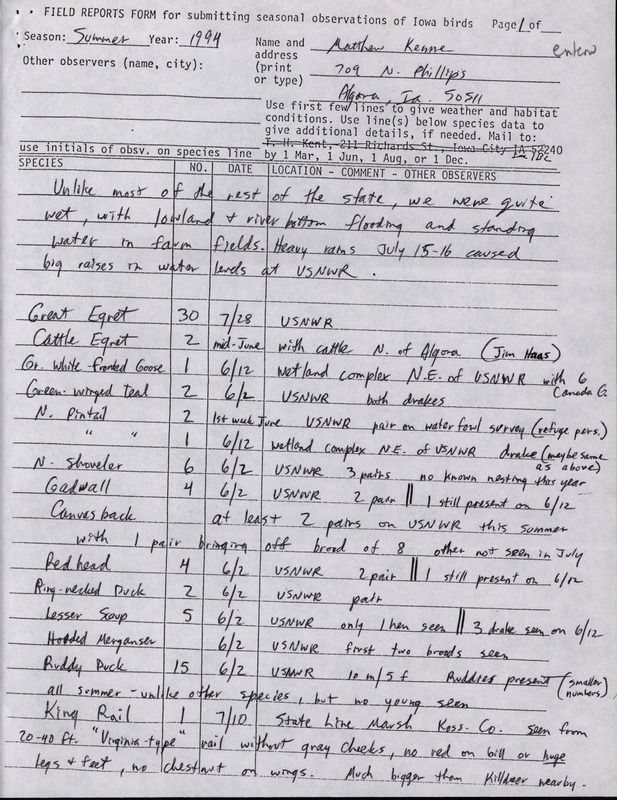 FIELD REPORTS FORM for submitting seasonal observations of Iowa birds Page 1 of
Season: Summer Year: 1994
Name and address (print or type)
Matthew Kenne
709 N. Phillips
Algona, Ia. 50511
Other observers (name, city):
Use first few lines to give weather and habitat
conditions. Use line(s) below species data to
give additional details, if needed. Mail to:
T. H. Kent, 211 Richards St., Iowa City IA 52240
use initials of obsv. on species line by 1 Mar, 1 Jun, 1 Aug, or 1 Dec.
SPECIES NO. DATE LOCATION - COMMENT - OTHER OBSERVERS
Unlike most of the rest of the state, we were quite
wet, with lowland + river bottom flooding and standing
water in farm fields. Heavy rains July 15-16 caused
big raises in water levels at USNWR.
Great Egret 30 7/28 USNWR
Cattle Egret 2 mid-June with cattle N. of Algona (Jim Haas)
Gr. White-fronted Goose 1 6/12 wetland complex N.E. of USNWR with 6 Canada G.
Green-winged Teal 2 6/2 USNWR both drakes
N. Pintail 2 1st week June USNWR pair on waterfowl survey (refuge pers.)
" " 1 6/12 wetland complex N.E. of USNWR drake (maybe same as above)
N. Shoveler 6 6/2 USNWR 3 pairs no known nesting this year
Gadwall 4 6/2 USNWR 2 pair || 1 still present on 6/12
Canvasback at least 2 pairs on USNWR this summer
with 1 pair bringing off brood of 8 other not seen in July
Redhead 4 6/2 USNWR 2 pair || 1 still present on 6/12
Ring-necked Duck 2 6/2 USNWR pair
Lesser Scaup 5 6/2 USNWR only 1 hen seen || 3 drake seen on 6/12
Hooded Merganser 6/2 USNWR first two broods seen
Ruddy Duck 15 6/2 USNWR 10 m/5 f Ruddies present (smaller numbers)
all summer - unlike other species, but no young seen
King Rail 1 7/10 State Line Marsh Koss. Co. seen from
20-40 ft. "Virginia-type" rail without gray cheeks, no red on bill or huge
legs & feet, no chestnut on wings. Much bigger than Killdeer nearby.